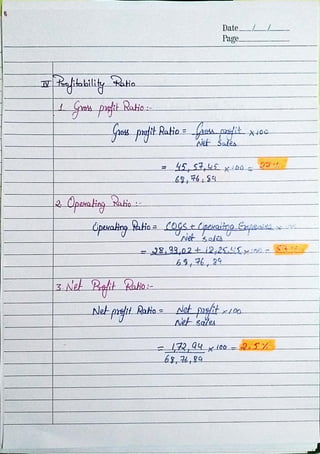 Date / /
Page
IV Profitability Ratio
1. Gross profit Ratio :-
Gross profit Ratio = Gross profit × 100
Net Sales
= 45,57,45 × 100 =
68,76,89
2. Operating Ratio :-
Operating Ratio = COGS + Operating Expenses ×
Net sales
= 28,99,02 + 12,25,45 × 100 =
68,76,89
3. Net Profit Ratio :-
Net profit Ratio = Net profit × 100
Net sales
= 1,72,94 × 100 = 2.5%
68,76,89